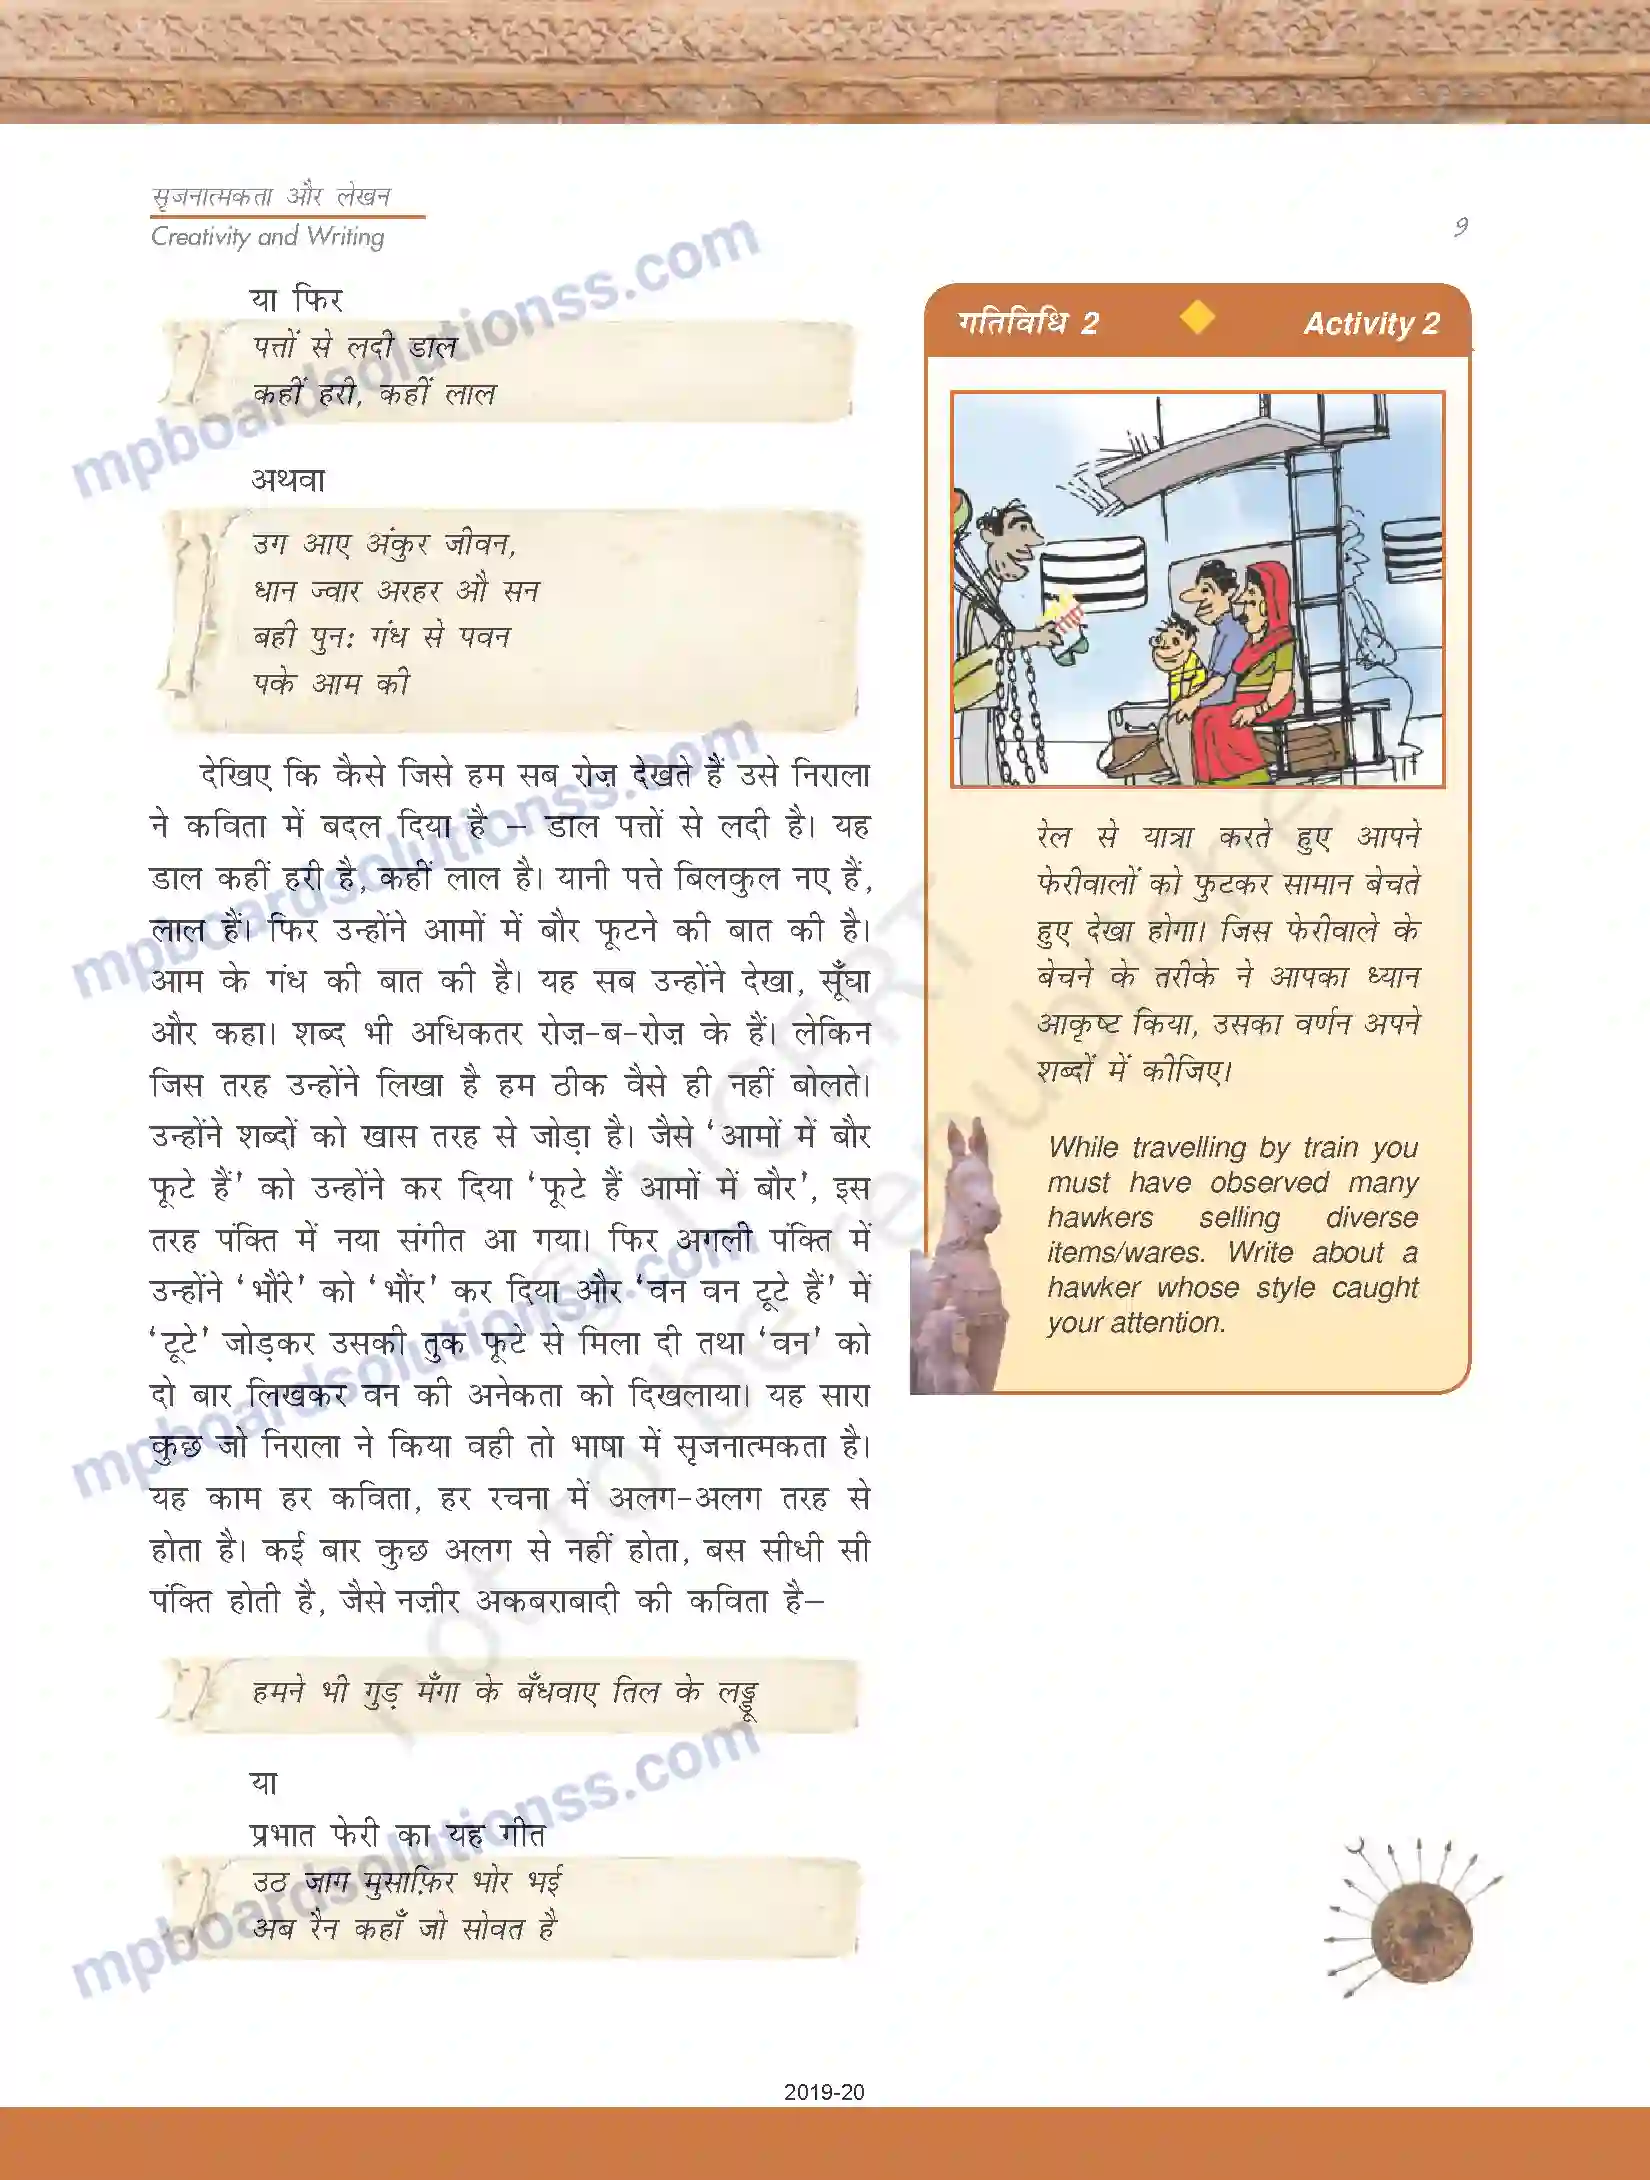 सृजनात्मकता और लेखन
Creativity and Writing
9
या फिर
पत्तों से लदी डाल
कहीं हरी, कहीं लाल
अथवा
उग आए अंकुर जीवन,
धान ज्वार अरहर औ सन
बही पुनः गंध से पवन
पके आम की
देखिए कि कैसे जिसे हम सब रोज़ देखते हैं उसे निराला
ने कविता में बदल दिया है – डाल पत्तों से लदी है। यह
डाल कहीं हरी है, कहीं लाल है। यानी पत्ते बिलकुल नए हैं,
लाल हैं। फिर उन्होंने आमों में बौर फूटने की बात की है।
आम के गंध की बात की है। यह सब उन्होंने देखा, सूँघा
और कहा। शब्द भी अधिकतर रोज़-ब-रोज़ के हैं। लेकिन
जिस तरह उन्होंने लिखा है हम ठीक वैसे ही नहीं बोलते।
उन्होंने शब्दों को खास तरह से जोड़ा है। जैसे ‘आमों में बौर
फूटे हैं’ को उन्होंने कर दिया ‘फूटे हैं आमों में बौर’, इस
तरह पंक्ति में नया संगीत आ गया। फिर अगली पंक्ति में
उन्होंने ‘भौंरे’ को ‘भौंर’ कर दिया और ‘वन वन टूटे हैं’ में
‘टूटे’ जोड़कर उसकी तुक फूटे से मिला दी तथा ‘वन’ को
दो बार लिखकर वन की अनेकता को दिखलाया। यह सारा
कुछ जो निराला ने किया वही तो भाषा में सृजनात्मकता है।
यह काम हर कविता, हर रचना में अलग-अलग तरह से
होता है। कई बार कुछ अलग से नहीं होता, बस सीधी सी
पंक्ति होती है, जैसे नज़ीर अकबराबादी की कविता है–
हमने भी गुड़ मँगा के बँधवाए तिल के लड्डू
या
प्रभात फेरी का यह गीत
उठ जाग मुसाफ़िर भोर भई
अब रैन कहाँ जो सोवत है
गतिविधि 2
Activity 2
रेल से यात्रा करते हुए आपने
फेरीवालों को फुटकर सामान बेचते
हुए देखा होगा। जिस फेरीवाले के
बेचने के तरीके ने आपका ध्यान
आकृष्ट किया, उसका वर्णन अपने
शब्दों में कीजिए।
While travelling by train you
must have observed many
hawkers selling diverse
items/wares. Write about a
hawker whose style caught
your attention.
2019-20
mpboardsolutionss.com
mpboardsolutionss.com
mpboardsolutionss.com
mpboardsolutionss.com
© NCERT
not to be republishe